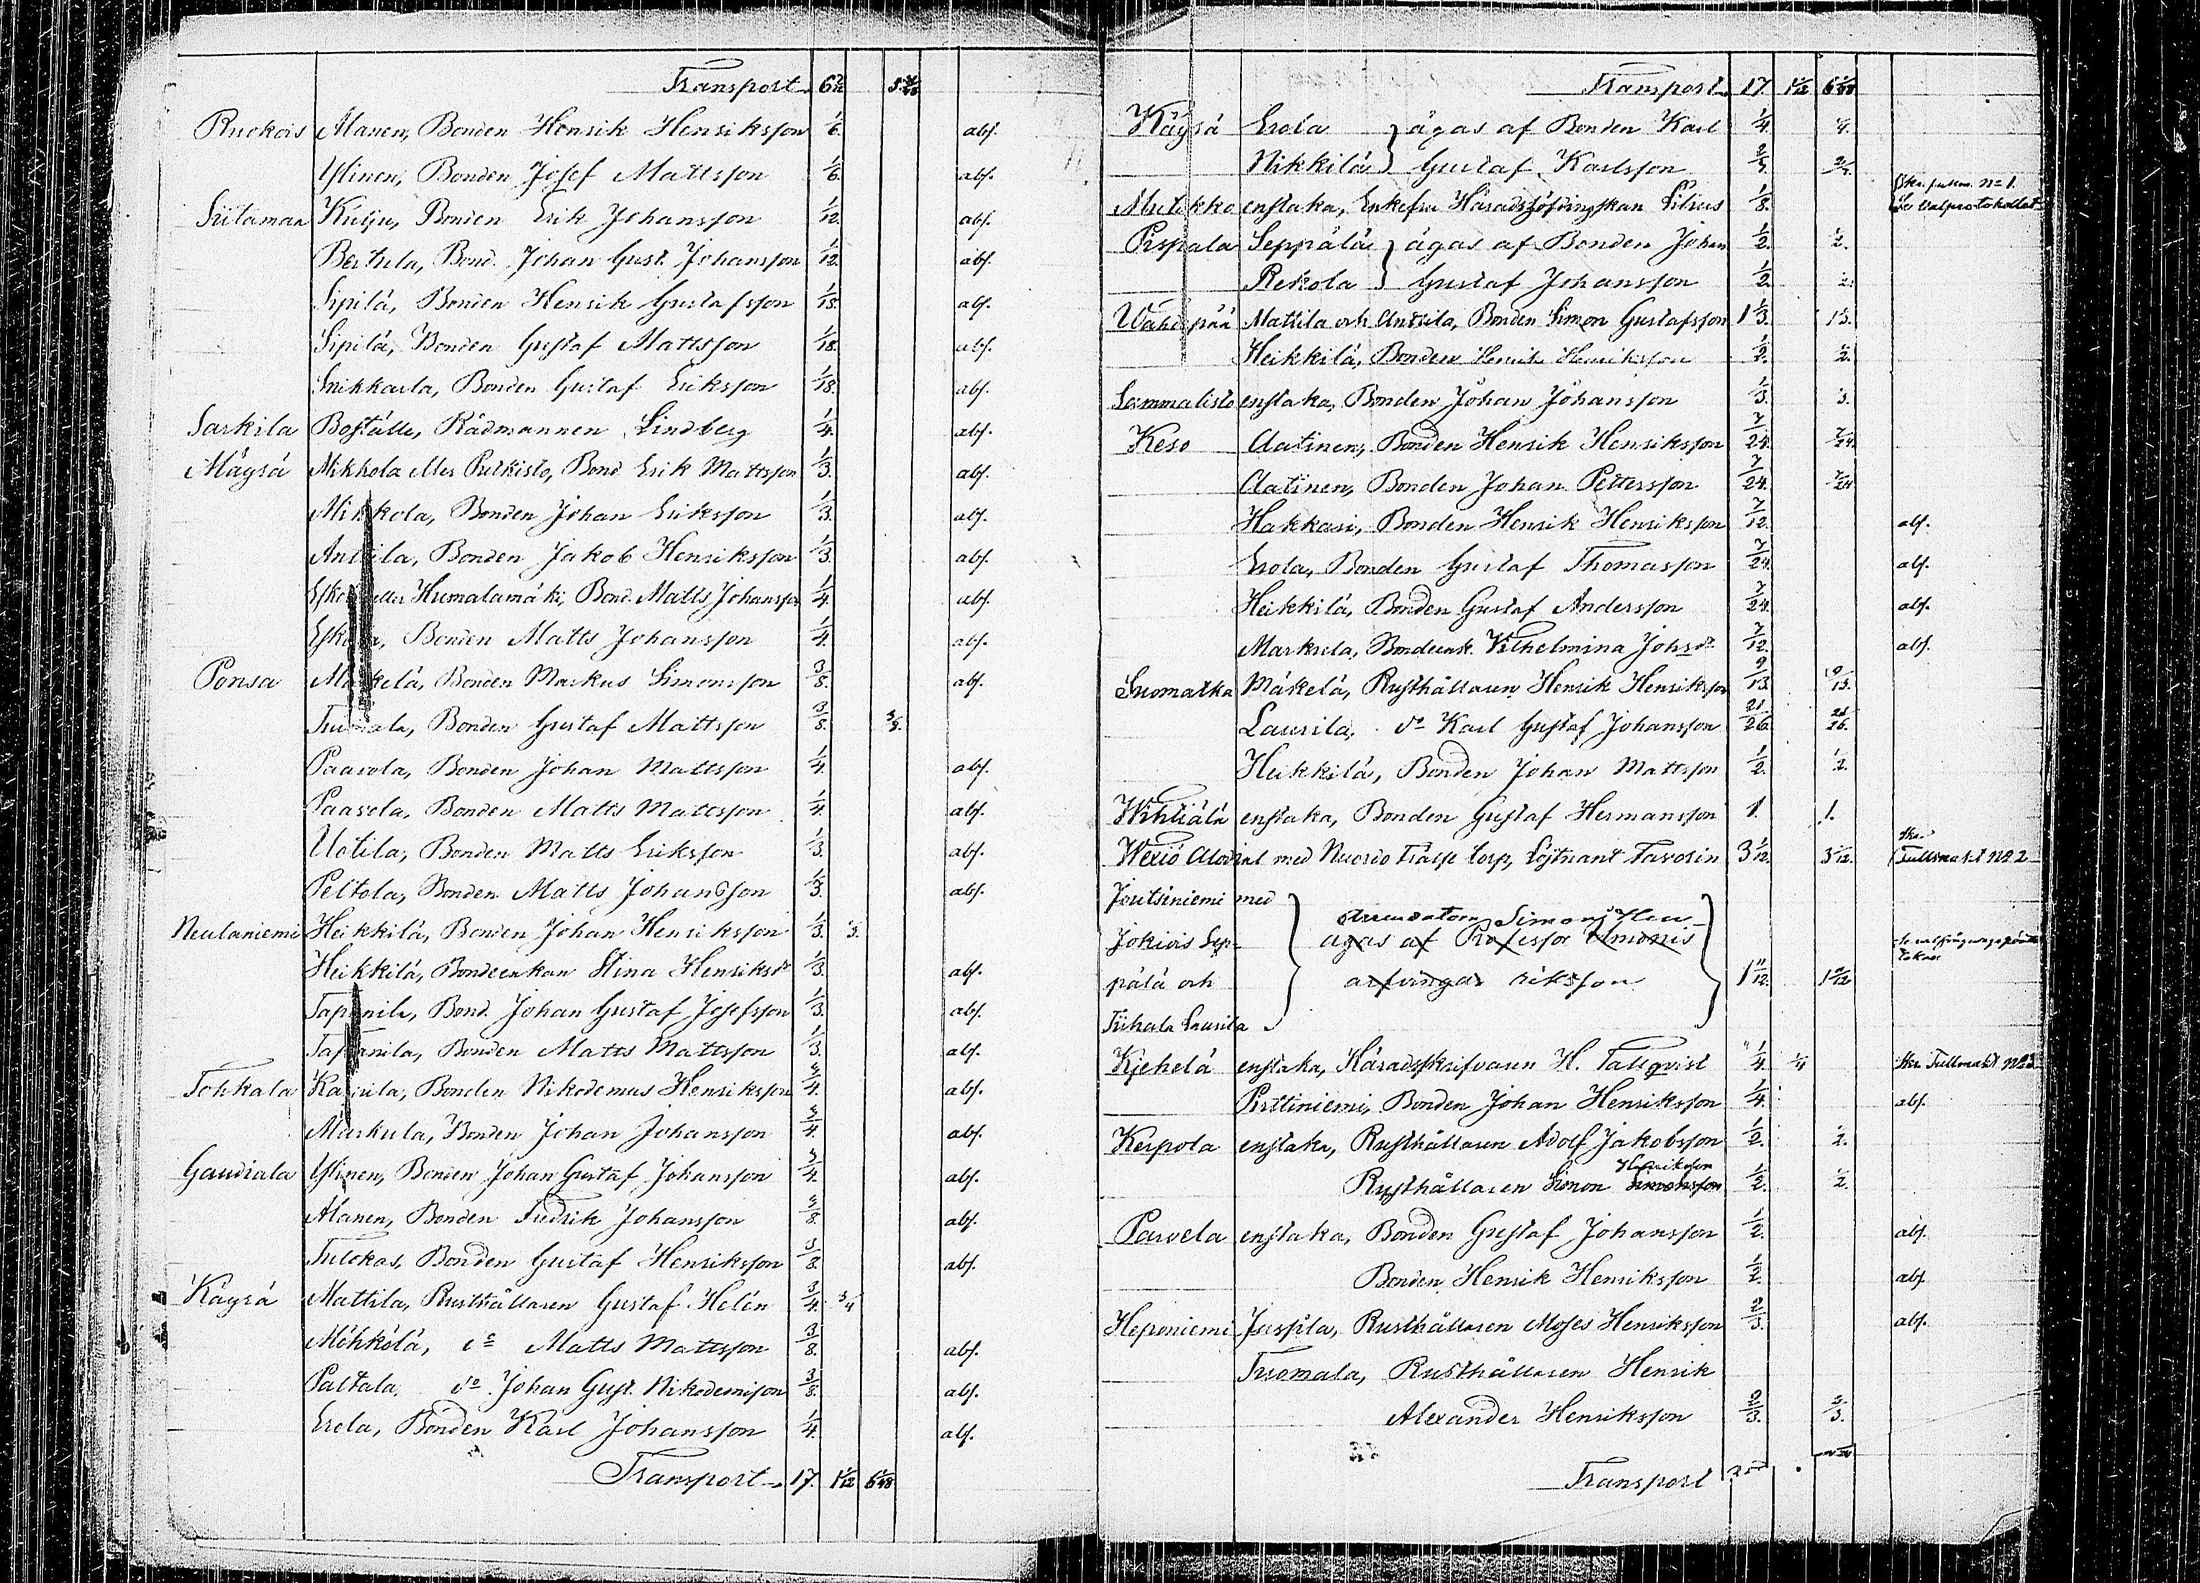 Transport 6 5/12
Ruokois Alanen, Bonden Henrik Henriksson 1/6. abs.
Ylinen, Bonden Josef Mattsson 1/6. abs.
Sutamaa Kutju, Bonden Erik Johansson 1/12. abs.
Berttula, Bond. Johan Gust. Johansson 1/12. abs.
Sipilä, Bonden Henrik Gustafsson 1/18. abs.
Sipilä, Bonden Gustaf Mattsson 1/18. abs.
Snikkarla, Bonden Gustaf Eriksson 1/18. abs.
Sarkila Boställe, Rådmannen Lindberg 1/4. abs.
Mäyrä Mikkola eller Putkisto, Bond. Erik Mattsson 1/3. abs.
Mikkola, Bonden Johan Eriksson 1/3. abs.
Anttila, Bonden Jakob Henriksson 1/3. abs.
Eskola eller Humalamäki, Bond. Matts Johansson 1/4. abs.
Eskola, Bonden Matts Johansson 1/4. abs.
Ponsa Mäkelä, Bonden Markus Simonsson 3/8. abs.
Tuomala, Bonden Gustaf Mattsson 3/8. 3/8.
Paavola, Bonden Johan Mattsson 1/4. abs.
Paavola, Bonden Matts Mattsson 1/4. abs.
Uotila, Bonden Matts Eriksson 1/3. abs.
Peltola, Bonden Matts Johansson 1/3. abs.
Neulaniemi Heikkilä, Bonden Johan Henriksson 1/3. 1/3.
Heikkilä, Bondeenkan Stina Henriksdr 1/3. abs.
Tapanila, Bond. Johan Gustaf Josefsson 1/3. abs.
Tapanila, Bonden Matts Mattsson 1/3. abs.
Tohkala Kaurila, Bonden Nikodemus Henriksson 3/4. abs.
Markula, Bonden Johan Johansson 3/4. abs.
Gaudiala Ylinen, Bonden Johan Gustaf Johansson 3/4. abs.
Alanen, Bonden Fredrik Johansson 3/8. abs.
Tulokas, Bonden Gustaf Henriksson 3/8. abs.
Käyrä Mattila, Rusthållaren Gustaf Helén 3/4. 3/4
Möhkölä, do Matts Mattsson 3/8. abs.
Paltala, do Johan Gust. Nikodemisson 3/8. abs.
Erola, Bonden Karl Johansson 1/4. abs.
Transport 17. 1 1/12 6 1/48
Transport 17. 1 1/12 6 1/48
Käyrä Erola } ägas af Bonden Karl 1/4. 1/4.
Nikkilä } Gustaf Karlsson
Mutikko enstaka, Enkefru Häradshöfdingskan Lilius 1/8. Se Valprotokollet
Pispala Seppälä } ägas af Bonden Johan 1/2. 1/2.
Rekola } Gustaf Johansson 1/2. 1/2.
Wähäpää Mattila och Anttila, Bonden Simon Gustafsson 1 1/3. 1 1/3.
Heikkilä, Bonden Henrik Henriksson 1/2. 1/2.
Sammalisto enstaka, Bonden Johan Johansson 1/3. 1/3.
Keso Aatinen, Bonden Henrik Henriksson 7/24. 7/24.
Aatinen, Bonden Johan Pettersson 7/24. 7/24
Hakkari, Bonden Henrik Henriksson 7/12. abs.
Erola, Bonden Gustaf Thomasson 7/24. abs.
Heikkilä, Bonden Gustaf Andersson 7/24. abs.
Markula, Bondeenk. Wilhelmina Johsdr 7/12. abs.
Suomatka Mäkelä, Rusthållaren Henrik Henriksson 9/13. 9/13.
Laurila, do Karl Gustaf Johansson 21/26. 21/26.
Heikkilä, Bonden Johan Mattsson 1/2. 1/2.
Wihtiälä enstaka, Bonden Gustaf Hermansson 1. 1.
Wexiö Alodial med Nuorio Frälse torp, Löjtnant Favorin 3 1/12. 3 1/12. Fullmakt No 2
Joutsiniemi med
Jokiois Sep- ägas af Professor Simonis
pälä och arfvingar 1 11/12. 1 11/12
Tiihala Laurila Arrendatorn Simon Hen-riksson
Kjehelä enstaka, Häradsskrifvaren H. Tallqvist 1/4. 1/4 Fullmakt No 3
Pntiniemi, Bonden Johan Henriksson 1/4. abs.
Kerpola enstaka, Rusthållaren Adolf Jakobsson 1/2. 1/2.
Henriksson
Rusthållaren Simon Simonsson 1/2. 1/2.
Parvela enstaka, Bonden Gustaf Johansson 1/2. abs.
Bonden Henrik Henriksson 1/2. abs.
Heponiemi Jussila, Rusthållaren Moses Henriksson 2/3. abs.
Tuomala, Rusthållaren Henrik
Alexander Henriksson 2/3. 2/3.
Transport